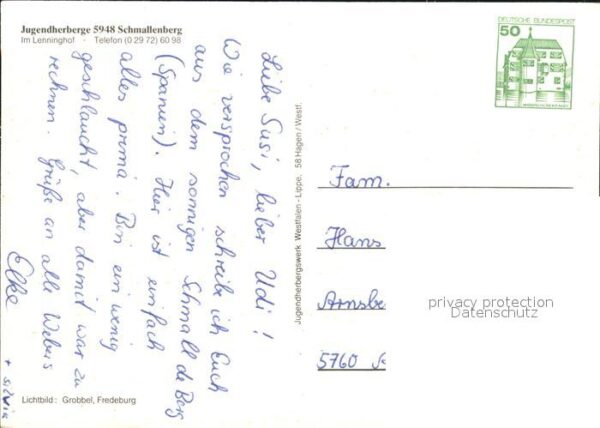 Jugendherberge 5948 Schmallenberg
Im Lenninghof · Telefon (0 29 72) 60 98
Liebe Susi, lieber Udi!
Wie versprochen schreibe ich Euch
aus dem sonnigen Schmall de Berg
(Spanien). Hier ist einfach
alles prima. Bin ein wenig
geschlaucht, aber damit war zu
rechnen. Grüße an alle Webers
Elke
+ Silvia
Lichtbild: Grobbel, Fredeburg
Jugendherbergswerk Westfalen-Lippe, 58 Hagen/Westf.
DEUTSCHE BUNDESPOST
50
Fam.
Hans
Arnsbe
5760
privacy protection
Datenschutz